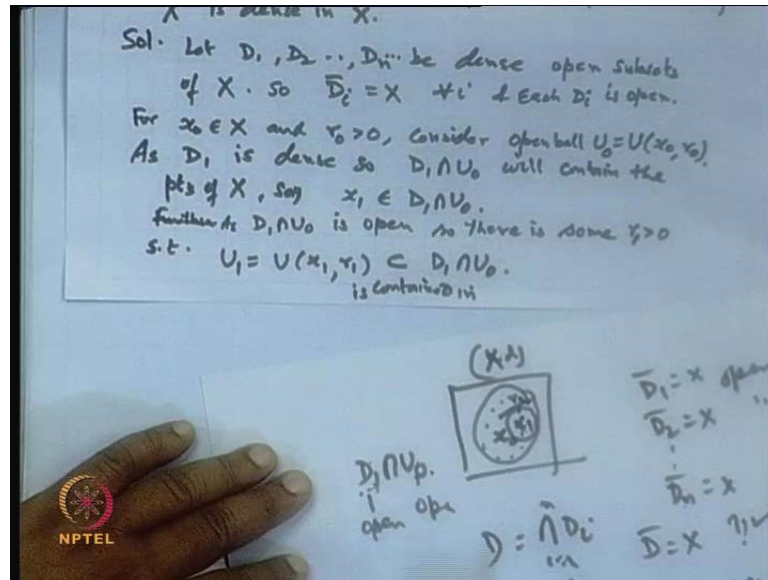 X is dense in X.
Sol. Let D₁, D₂ .., Dₙ... be dense open subsets
of X. so D̄ᵢ = X ∀i & Each Dᵢ is open.
For x₀ ∈ X and r₀ > 0, consider open ball U₀ = U(x₀, r₀).
As D₁ is dense so D₁∩U₀ will contain the
pts of X, say x₁ ∈ D₁∩U₀.
Further As D₁∩U₀ is open so there is some r₁>0
s.t. U₁ = U(x₁, r₁) ⊂ D₁∩U₀.
is contained in
(X,d)
x₁
D̄₁ = X open
D̄₂ = X
D̄ₙ = X
D₁∩U₀.
open ope
D = ∩ Dᵢ
D̄ = X ?
NPTEL